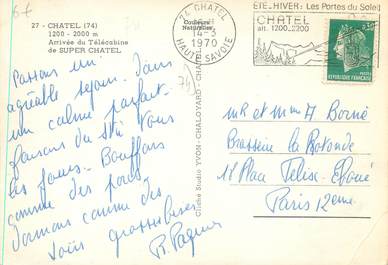 67
27 - CHATEL (74)
1200 - 2000 m
Arrivée du Télécabine
de SUPER CHATEL
Couleurs
Naturelles
Passons un
agréable séjour. Dans
un calme parfait.
faisons du ski tous
les jours. Bouffons
comme des porcs
Dormons comme des
loirs grosses bises
Cliché Studio YVON - CHALOYARD - CHATEL
74 CHATEL
14-3
1970
HAUTE SAVOIE
ÉTÉ-HIVER: Les Portes du Soleil
CHATEL
alt. 1200..2200
0,30
REPUBLIQUE FRANÇAISE
Mr et Mme Borné
Brasserie la Rotonde
Place Félix Eboué
Paris 12eme